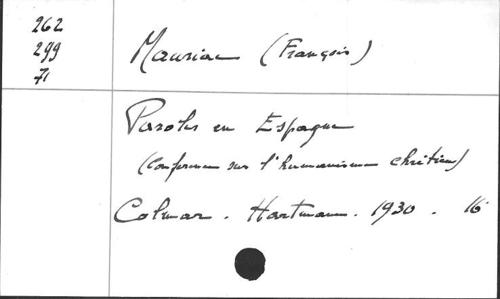 262
299
71
Mauriac (François)
Paroles en Espagne
(Conférence sur l'humanisme chrétien)
Colmar. Hartmann. 1930. 16